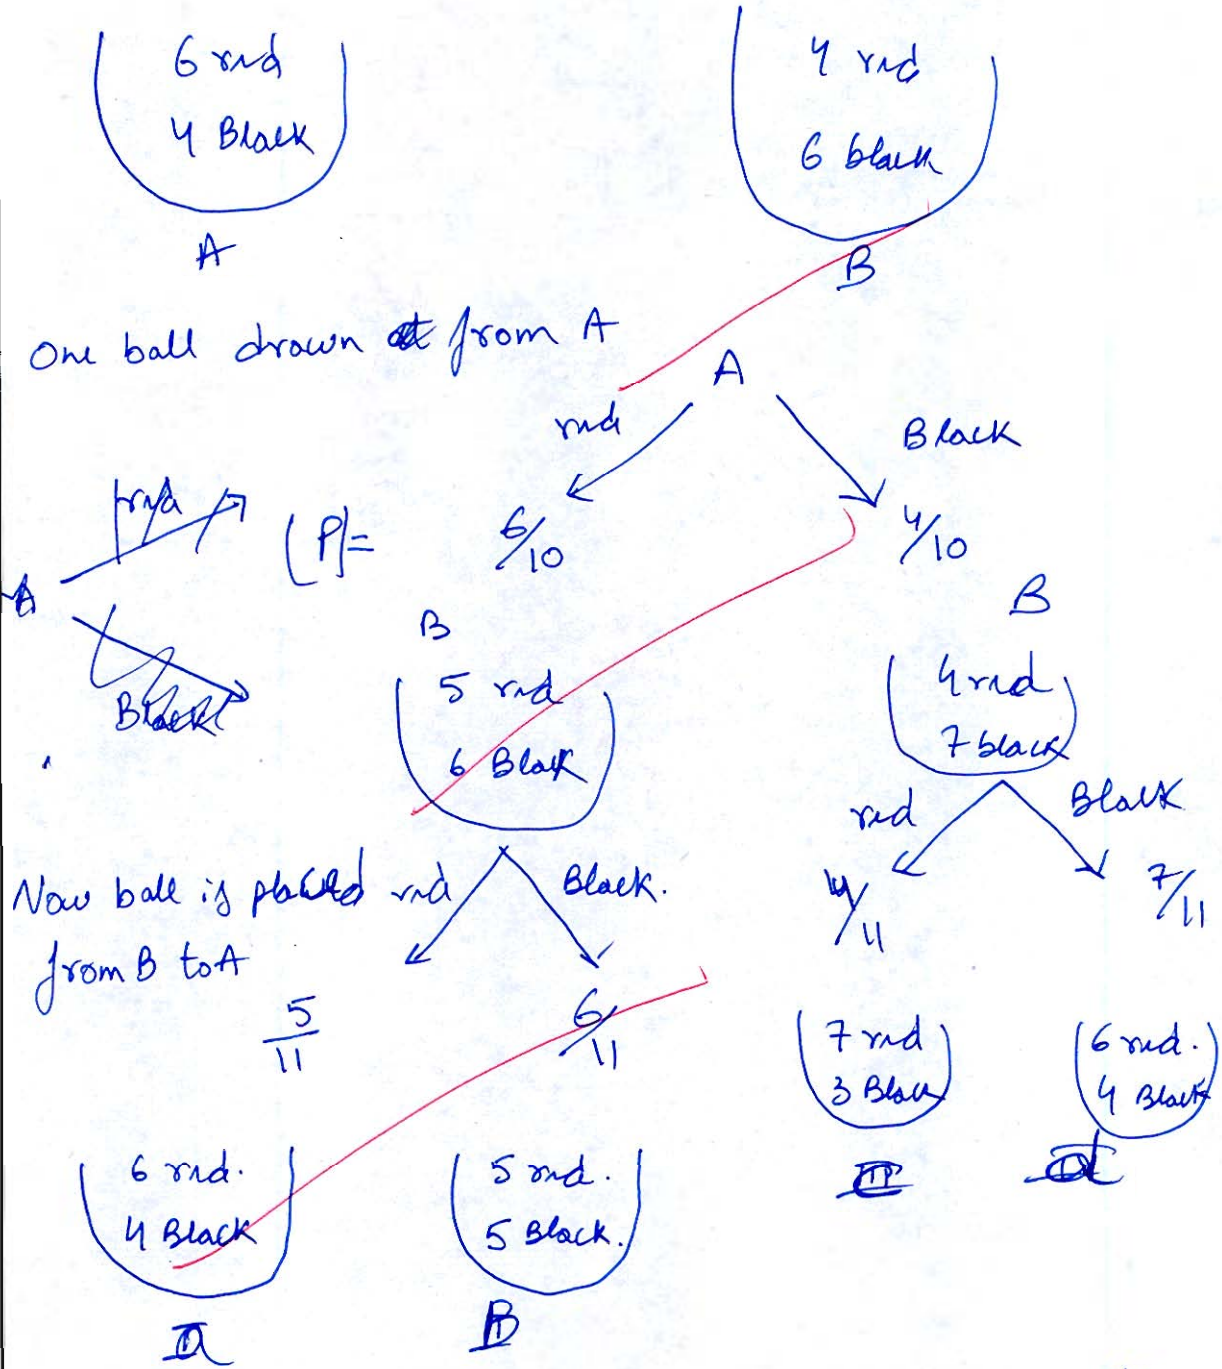 6 red
4 Black
A
4 red
6 black
B
One ball drawn from A
A
red
Black
red
(P)=
6/10
4/10
A
Black
B
5 red
6 Black
B
4 red
7 black
red
Black
Now ball is placed
from B to A
red
Black.
4/11
7/11
5/11
6/11
7 red
3 Black
6 red.
4 Black
6 red.
4 Black
5 red.
5 Black.